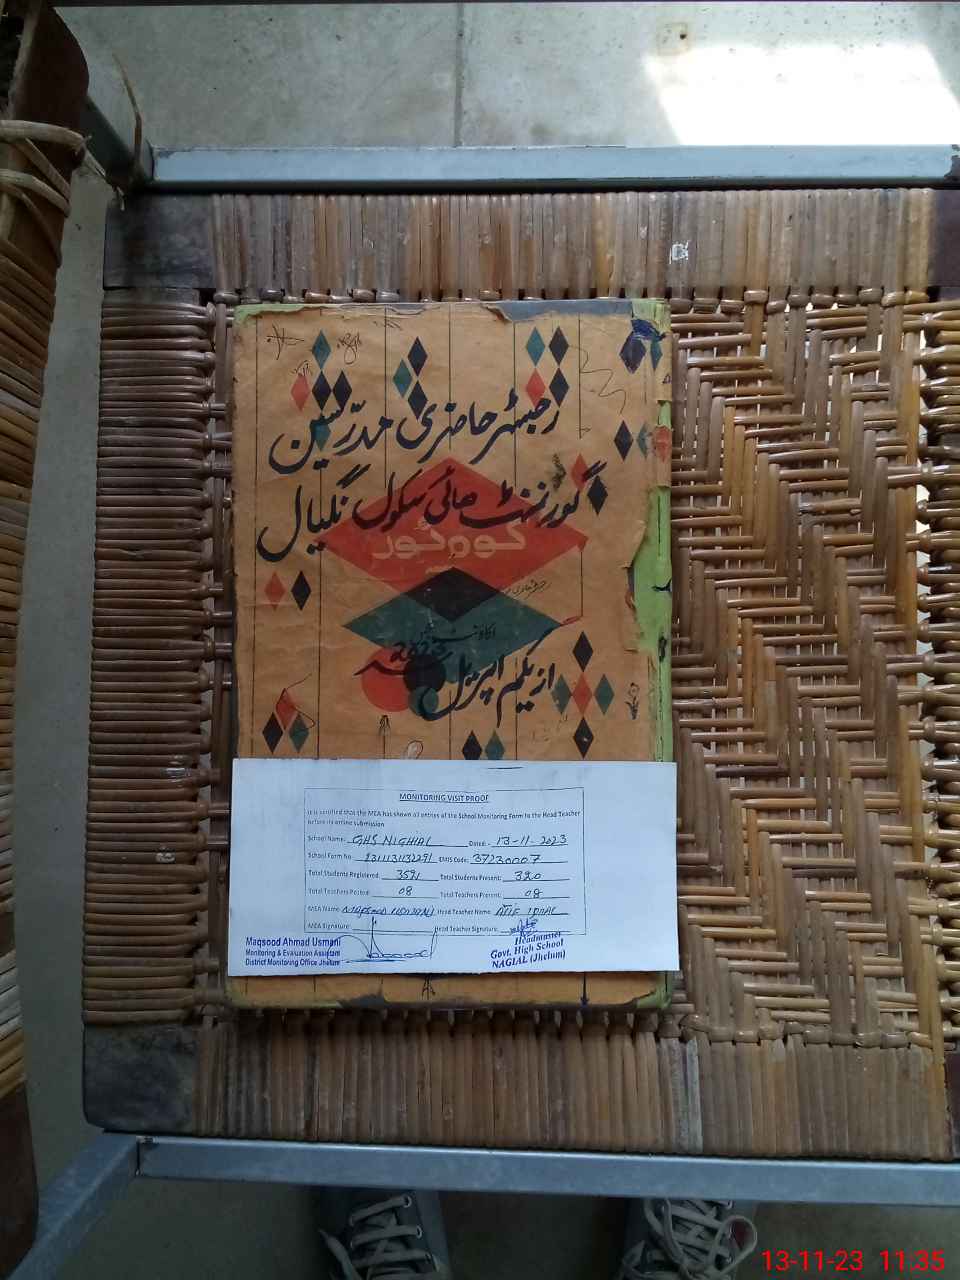 رجسٹر حاضری مدرسین
گورنمنٹ ہائی سکول نگیال
ازیکم اپریل 2023
MONITORING VISIT PROOF
It is certified that the MEA has shown all entries of the School Monitoring Form to the Head Teacher
before its online submission
School Name: GHS NIGHIAL Dated:- 13-11-2023
School Form No. EMIS Code: 37230007
Total Students Registered: 359 Total Students Present: 320
Total Teachers Posted: 08 Total Teachers Present: 08
MEA Name: Maqsood Usmani Head Teacher Name:
MEA Signature: Head Teacher Signature:
Maqsood Ahmad Usmani
Monitoring & Evaluation Assistant
District Monitoring Office Jhelum
Headmaster
Govt. High School
NAGIAL (Jhelum)
13-11-23 11:35